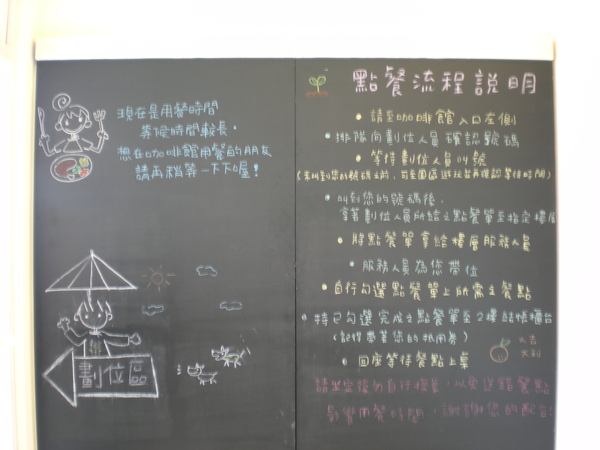 現在是用餐時間
等候時間較長。
想在咖啡館用餐的朋友
請再稍等一下下喔!
劃位區
點餐流程說明
請至咖啡館入口左側
排隊向劃位人員確認號碼
等待劃位人員叫號
(未叫到您的號碼之前,可至園區逛逛並再確認等待時間)
叫到您的號碼後,
拿著劃位人員所給之點餐單至指定樓層
將點餐單拿給樓層服務人員
服務人員為您帶位
自行勾選點餐單上所需之餐點
持已勾選完成之點餐單至2樓結帳櫃台
(記得帶著您的抵用券)
回座等待餐點上桌
大吉
大利
請坐定後勿自行換座,以免送錯餐點
影響用餐時間,謝謝您的配合!